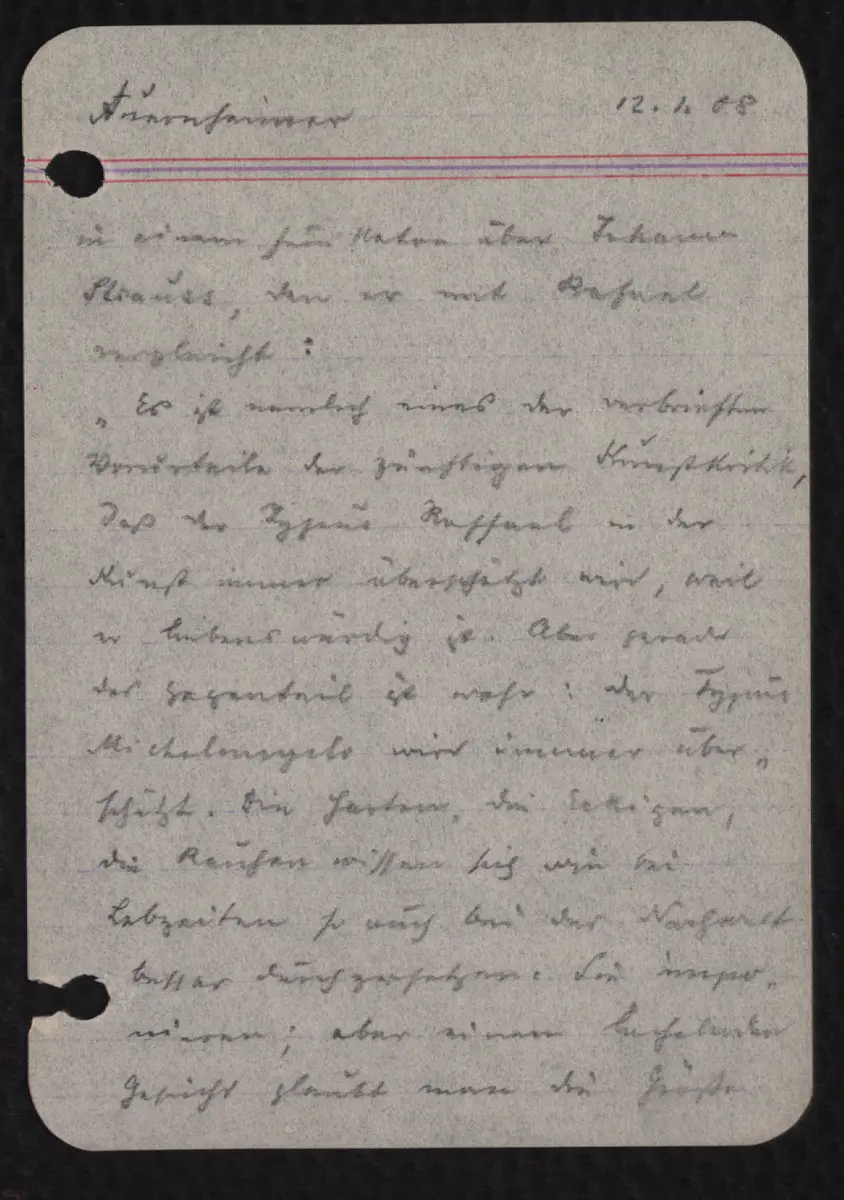 Auernheimer 12. 1. 08
in einem Feuilleton über Johann
Strauss, den er mit Rafael
vergleicht:
„Es ist nemlich eines der verbrieften
Vorurteile der zünftigen Kunstkritik,
daß der Typus Raffael in der
Kunst immer überschätzt wird, weil
er liebenswürdig ist. Aber gerade
das Gegenteil ist wahr: der Typus
Michelangelo wird immer über„
schätzt. Die Harten, die Eckigen,
die Rauhen wissen sich wie bei
Lebzeiten so auch bei der Nachwelt
besser durchzusetzen. Sie impo„
nieren; aber einem lachelnden
Gesicht glaubt man die Größe